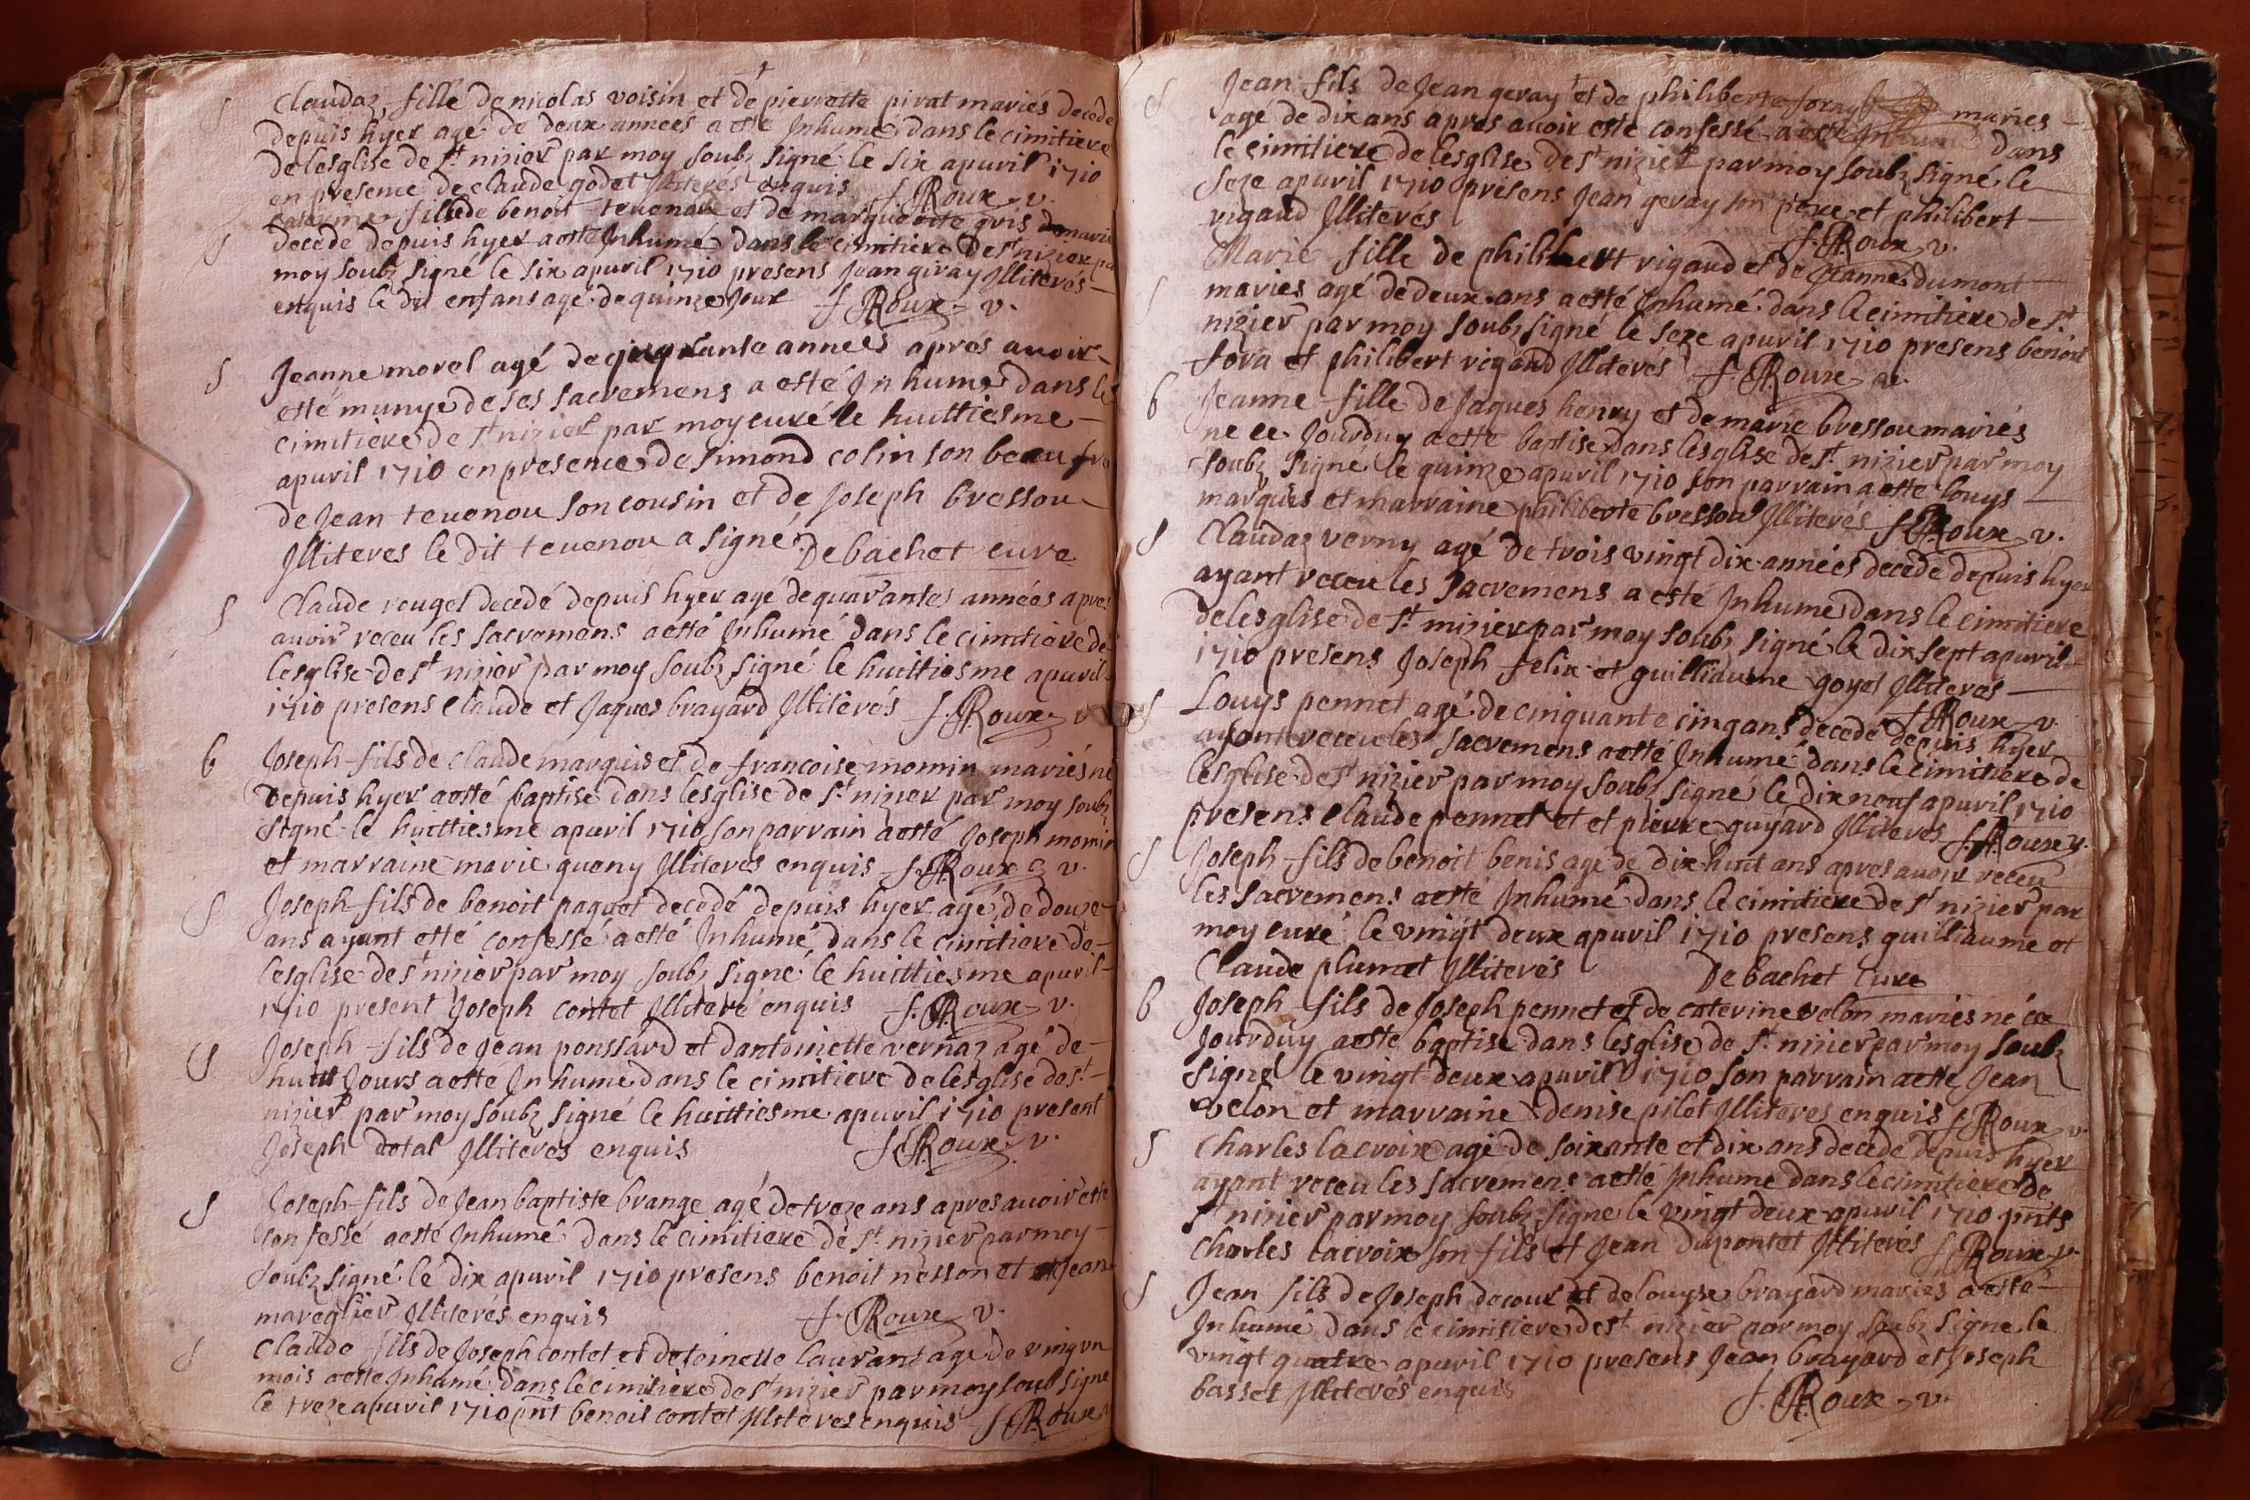 S Claudaz fille de nicolas voisin et de pierrette pirat mariés decede
depuis hyer agé de deux annees a esté Inhumé dans le cimitiere
de lesglise de st nizier par moy soubz signé le six apuril 1710
en presence de claude godet Illiterés enquis f. Roux v.
S Caterine fille de benoit teuenou et de marguerite gris mariés
decede depuis hyer a esté Inhumé dans le cimitiere de st nizier par
moy soubz signé le six apuril 1710 presens Jean giray Illiterés
enquis le dit enfans agé de quinze Jour f. Roux v.
S Jeanne morel agé de quarante annees apres auoir
esté munye de ses sacremens a esté Inhumé dans le
cimitiere de st nizier par moy curé le huittiesme
apuril 1710 en presence de simond colin son beau fre
de Jean teuenou son cousin et de Joseph bressou
Illiteres le dit teuenou a signé. De bachet cure
S Claude rouget decedé depuis hyer agé de quarantes années apres
auoir receu les sacremens a esté Inhumé dans le cimitiere de
lesglise de st nizier par moy soubz signé le huittiesme apuril
1710 presens Claude et Jaques brayard Illiterés f. Roux v
b Joseph fils de claude marquis et de francoise momin mariés né
depuis hyer a esté baptise dans lesglise de st nizier par moy soubz
signé le huittiesme apuril 1710 son parrain a esté Joseph momin
et marraine marie queny Illiteres enquis f. Roux v.
S Joseph fils de benoit paquet decedé depuis hyer agé de douze
ans ayant esté confessé a esté Inhumé dans le cimitiere de
lesglise de st nizier par moy soubz signé le huittiesme apuril
1710 present Joseph contet Illiteré enquis f. Roux v.
S Joseph fils de Jean ponssard et dantoinette vernaz agé de
huit Jours a esté Inhumé dans le cimitiere de lesglise de st
nizier par moy soubz signé le huittiesme apuril 1710 present
Joseph dotal Illiteres enquis f. Roux v.
S Joseph fils de Jean baptiste brange agé de treze ans apres auoir esté
confessé a esté Inhumé dans le cimitiere de st nizier par moy
soubz signé le dix apuril 1710 presens benoit nesson et Jean
mareglier Illiterés enquis f. Roux v.
S Claude fils de Joseph contet et de toinette laurant agé de vingt un
mois a esté Inhumé dans le cimitiere de st nizier par moy soub signé
le treze apuril 1710 pnt benoit contet Illiteres enquis f. Roux v
S Jean fils de Jean geray et de philiberte foray mariés
agé de dix ans apres auoir esté confessé a esté Inhumé dans
le cimitiere de lesglise de st nizier par moy soubz signé le
seze apuril 1710 presens Jean geray son pere et philibert
rigaud Illiterés f. Roux v.
S Marie fille de philibert rigaud et de Jeanne dumont
mariés agé de deux ans a esté Inhumé dans le cimitiere de st
nizier par moy soubz signé le seze apuril 1710 presens benoit
fora et philibert rigaud Illiterés f. Roux v.
b Jeanne fille de Jaques henry et de marie bressou mariés
né ce Jourduy a esté baptise dans lesglise de st nizier par moy
soubz signé le quinze apuril 1710 son parrain a esté louys
marquis et marraine philiberte bressou Illiterés f. Roux v.
S Claudaz verny agé de trois vingt dix années decede depuis hyer
ayant receu les sacremens a esté Inhumé dans le cimitiere
de lesglise de st nizier par moy soubz signé le dix sept apuril
1710 presens Joseph felix et guilliaume goyet Illiteres
f. Roux v.
S Louys pennet agé de cinquante cinq ans decede depuis hyer
ayant receu les sacremens a esté Inhumé dans le cimitiere de
lesglise de st nizier par moy soubz signé le dix nouf apuril 1710
presens Claude pennet et et pierre guyard Illiteres f. Roux v.
S Joseph fils de benoit benis agé de dix huit ans apres auoir receu
les sacremens a esté Inhumé dans le cimitiere de st nizier par
moy curé le vingt deux apuril 1710 presens guilliaume et
Claude plumet Illiterés De bachet Cure
b Joseph fils de Joseph pennet et de caterine velon mariés né ce
Jourduy a esté baptise dans lesglise de st nizier par moy soubz
signé le vingt deux apuril 1710 son parrain a esté Jean
velon et marraine denise pilot Illiteres enquis f. Roux v.
S Charles lacroix agé de soixante et dix ans decede depuis hyer
ayant receu les sacremens a esté Inhumé dans le cimitiere de
st nizier par moy soubz signé le vingt deux apuril 1710 pnts
Charles lacroix son fils et Jean dupontet Illiterés f. Roux v.
S Jean fils de Joseph decour et de louyse brayard mariés a esté
Inhumé dans le cimitiere de st nizier par moy soubz signe le
vingt quatre apuril 1710 presens Jean brayard et Joseph
basset Illiterés enquis f. Roux v.